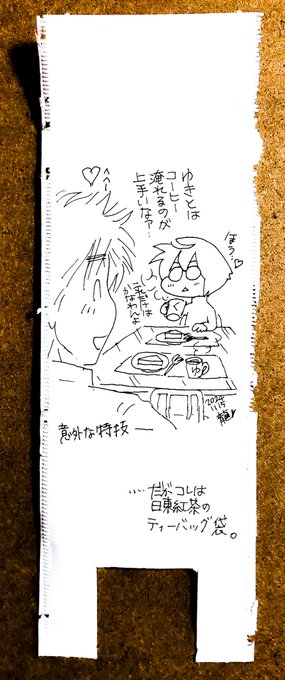 へへー
♡
ゆきとは
コーヒー
淹れるのが
上手いなァ…
ほぅ…♡
これだけは
かなわんよ
ゆ
意外な特技 ―
……だがコレは
日東紅茶の
ティーバッグ袋。